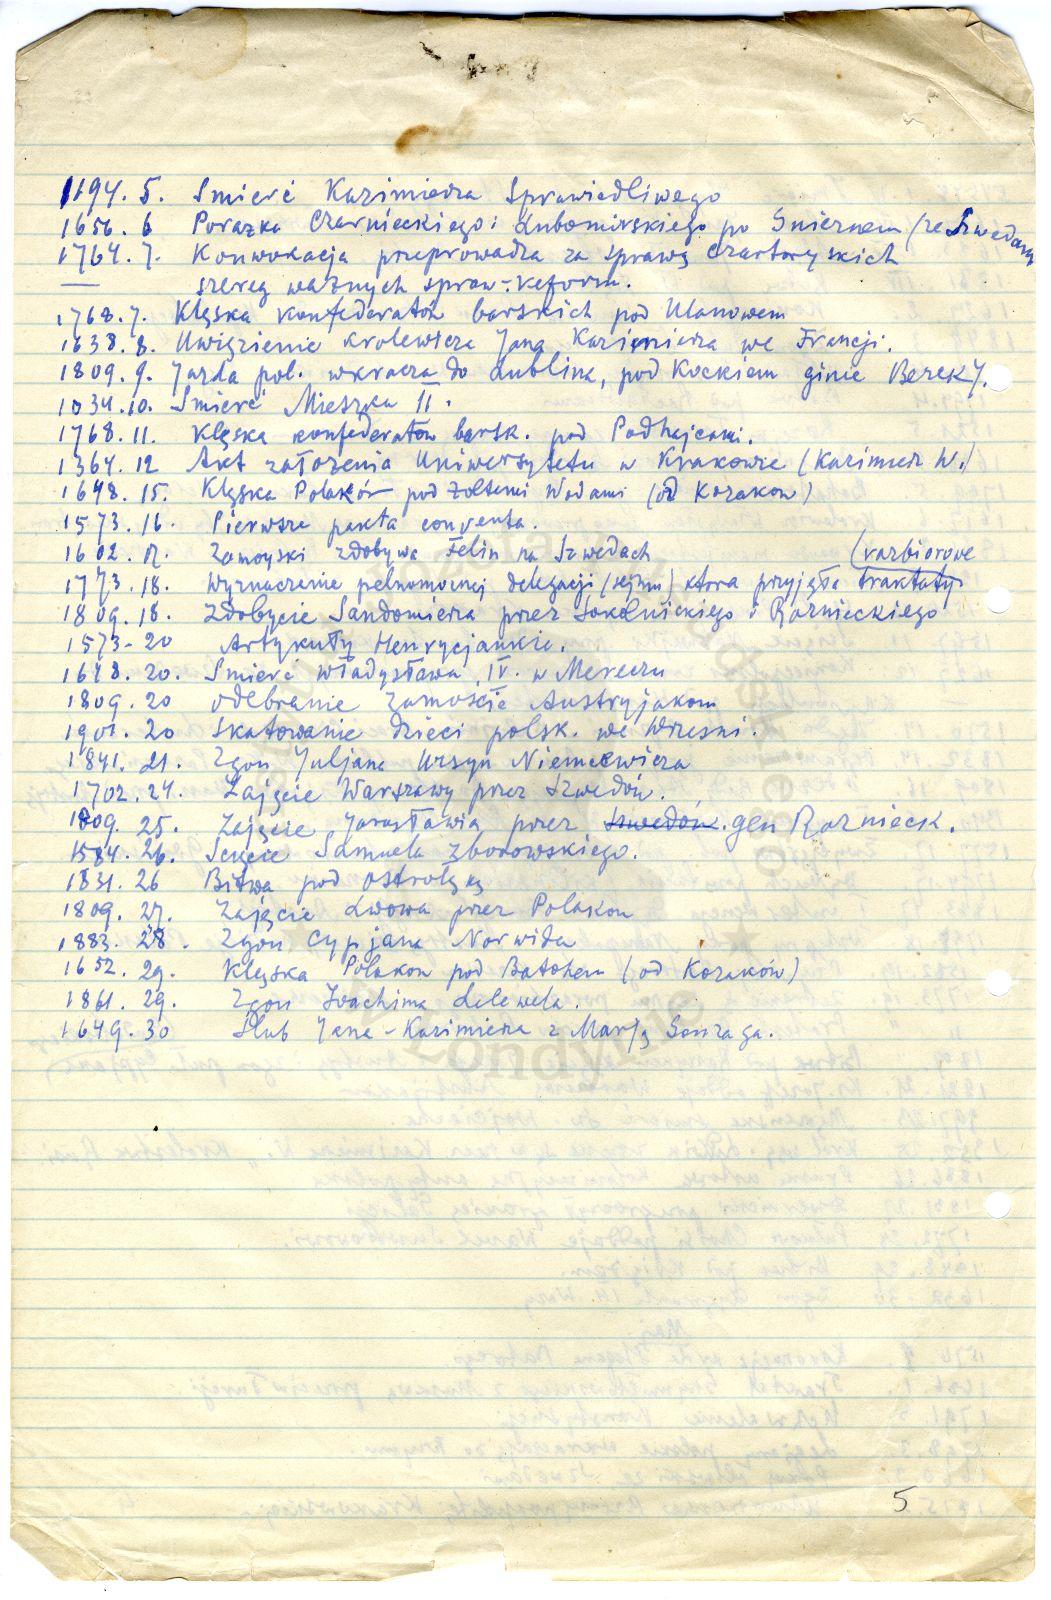 1194. 5. Smierć Kazimierza Sprawiedliwego
1656. 6 Porazka Czarnieckiego i Lubomirskiego po Gnieznem (ze Szwedami
1764. 7. Konwokacja przeprowadza za sprawą Czartoryskich
— szereg ważnych spraw-reform.
1768. 7. Klęska konfederatów barskich pod Ulanowem
1638. 8. Uwięzienie krolewicza Jana Kazimierza we Francji.
1809. 9. Jazda pol. wkracza do Lublina, pod Kockiem ginie Berek J.
1034. 10. Smierć Mieszka II.
1768. 11. Klęska konfederatów barsk. pod Podhajcami.
1364. 12 Akt założenia Uniwersytetu w Krakowie (Kazimierz W.)
1648. 15. Klęska Polaków pod Żoltemi Wodami (od Kozakow)
1573. 16. Pierwsze pakta conventa.
1602. 17. Zamoyski zdobywa Felin na Szwedach
(rozbiorowe
1773. 18. Wyznaczenie pełnomocnej delegacji (sejmu) ktora przyjęła traktaty
1809. 18. Zdobycie Sandomierza przez Sokolnickiego i Rożnieckiego
1573-20 Artykuły Henrycjańskie.
1648. 20. Smierć Władysława IV. w Mereczu
1809. 20 Odebranie Zamościa Austryjakom
1901. 20 Skatowanie dzieci polsk. we Wrzesni.
1841. 21. Zgon Juljana Ursyn Niemcewicza
1702. 24. Zajęcie Warszawy przez Szwedów.
1809. 25. Zajęcie Jarosławia przez Szwedów. gen Roznieck.
1584. 26. Scięcie Samuela Zborowskiego.
1831. 26 Bitwa pod Ostrołęką
1809. 27. Zajęcie Lwowa przez Polakow
1883. 28. Zgon Cypjana Norwida
1652. 29. Klęska Polakow pod Batohem (od Kozaków)
1861. 29. Zgon Joachima Lelewela.
1649. 30 Ślub Jana-Kazimierza z Marją Gonzaga.
5